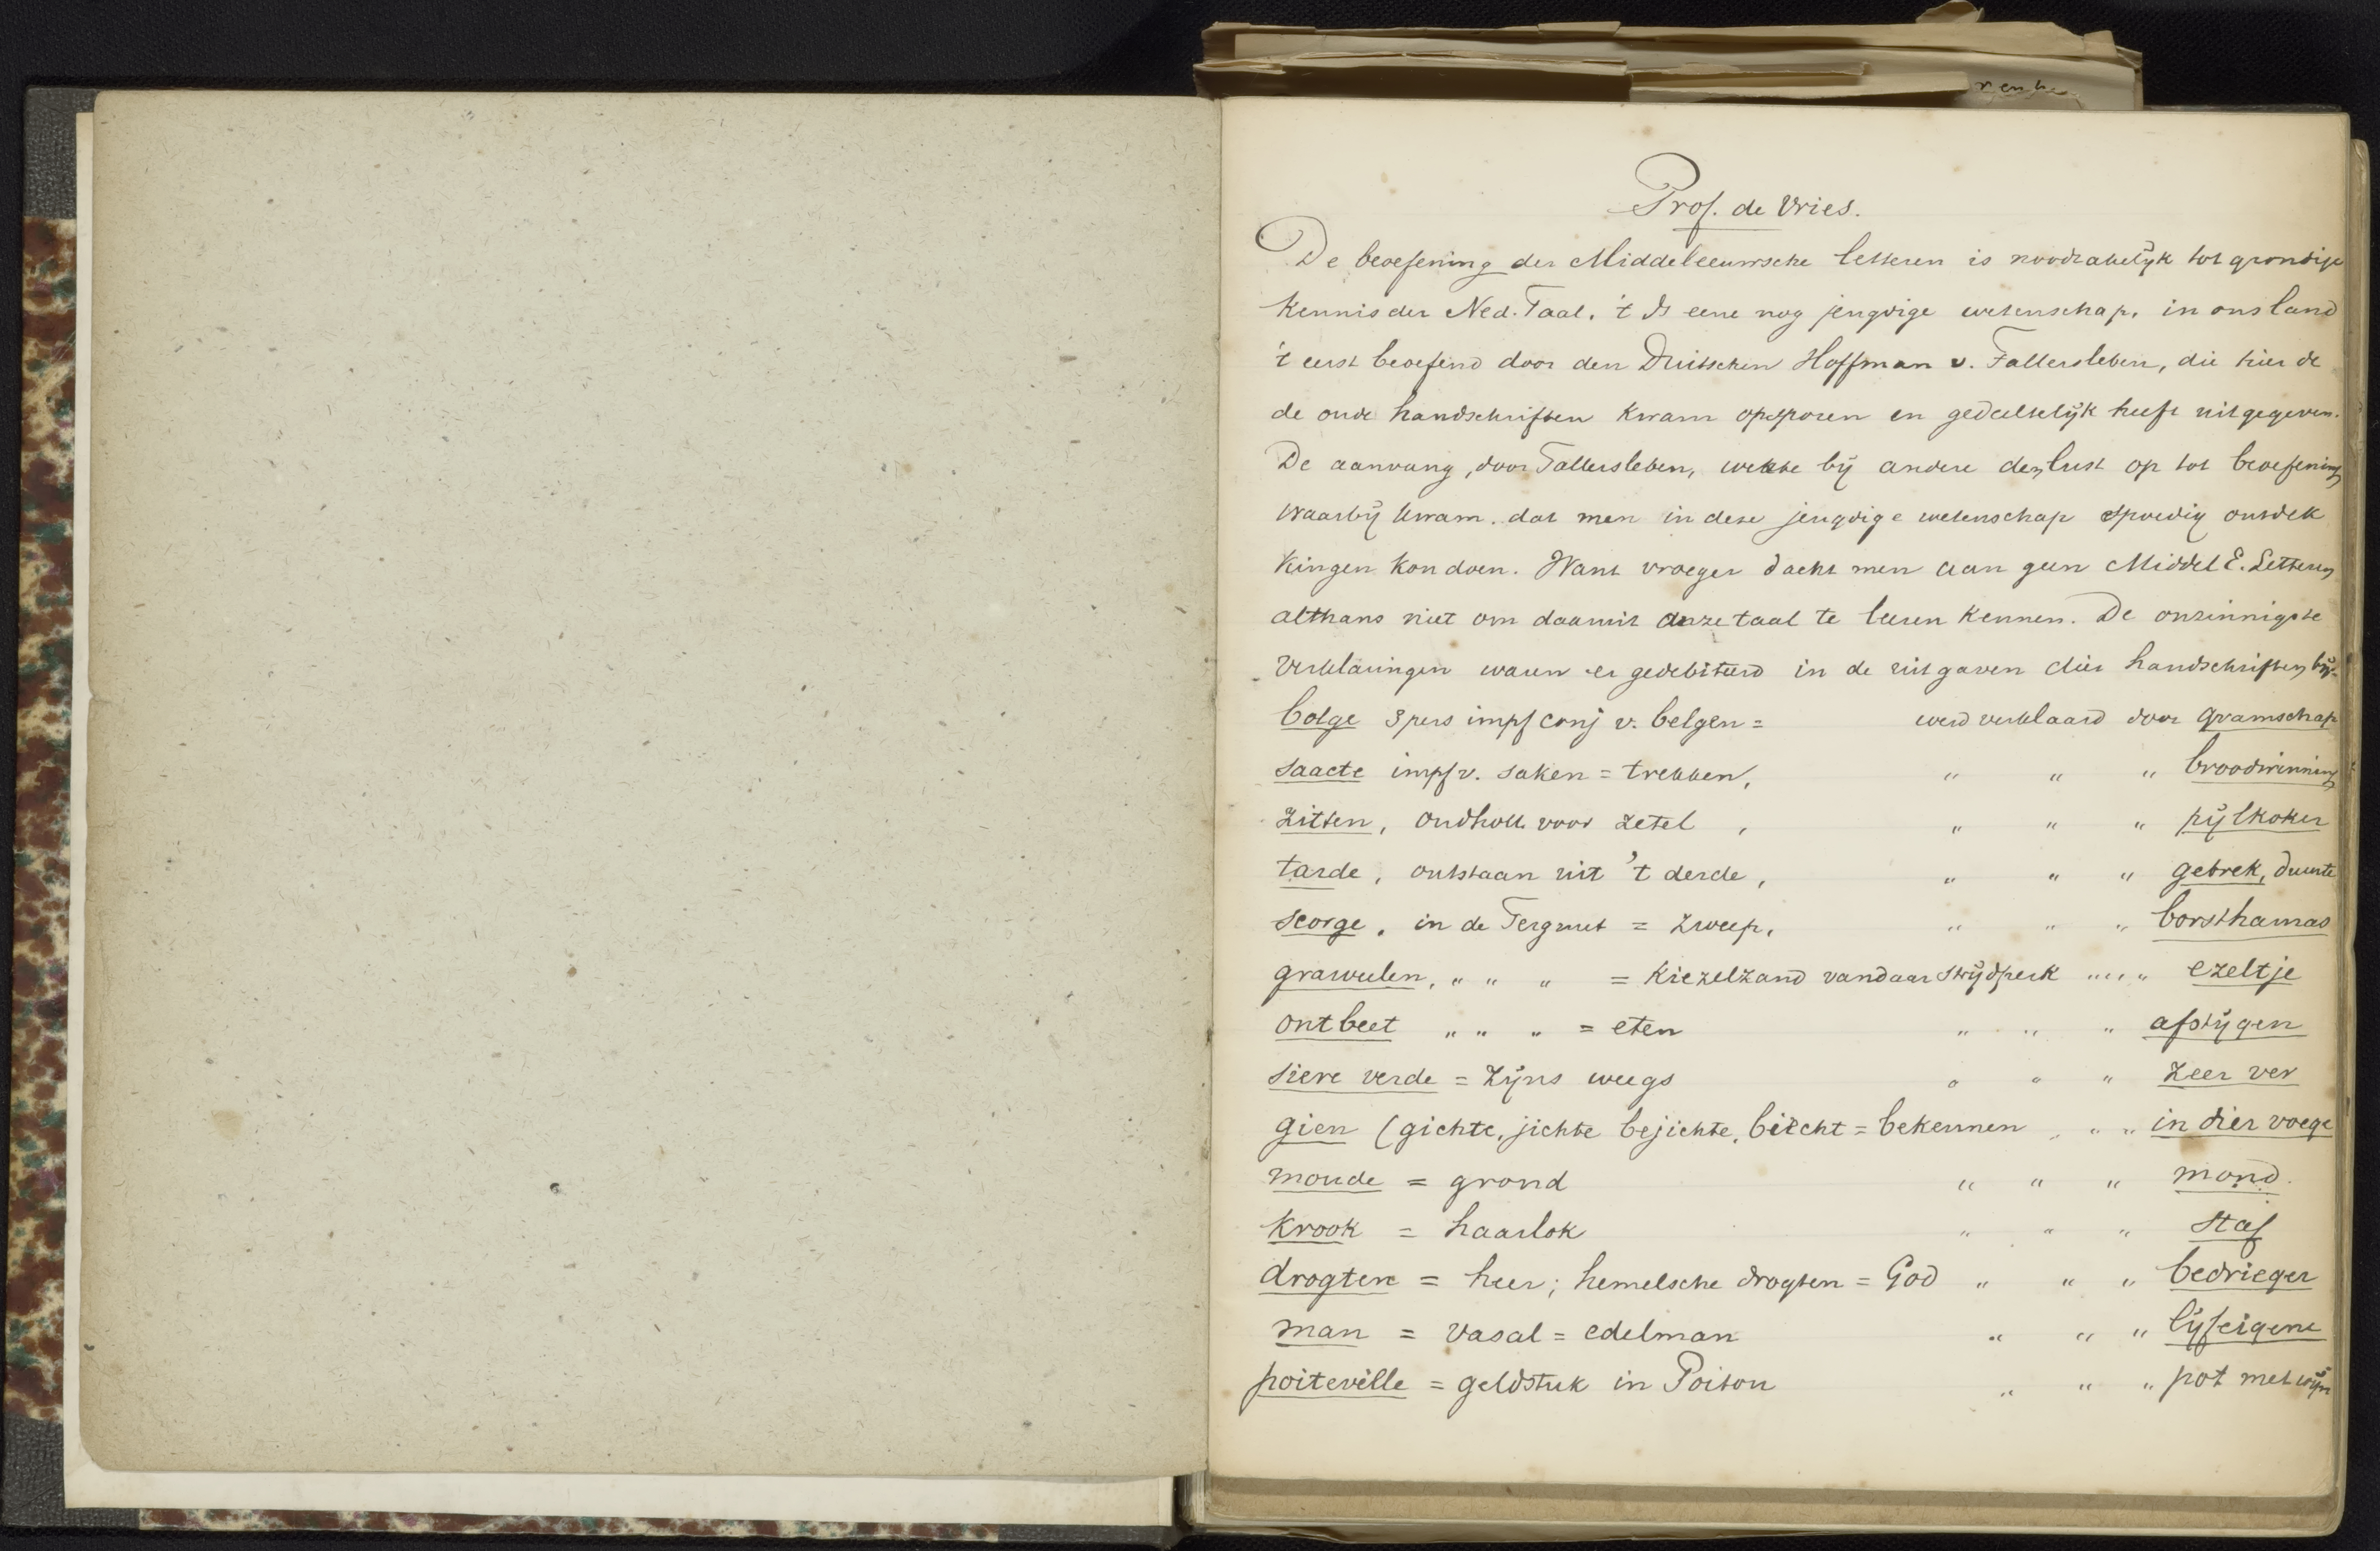 Prof. de Vries.
De beoefening der Middeleeuwsche letteren is noodzakelijk tot grondige
kennis der Ned. Taal. 't Is eene nog jeugdige wetenschap, in ons land
't eerst beoefend door den Duitschen Hoffman v. Fallersleben, die hier de
de oude handschriften kwam opsporen en gedeeltelijk heeft uitgegeven.
De aanvang, door Fallersleben, wekte bij andere den lust op tot beoefening
waarbij kwam. dat men in deze jeugdige wetenschap spoedig ontdek
kingen kon doen. Want vroeger dacht men aan geen Middel E. Letteren
althans niet om daaruit onze taal te leeren kennen. De onzinnigste
verklaringen waren er gedebiteerd in de uitgaven dier handschriften bijv.
bolge 3 pers impf conj v. belgen = werd verklaard door gramschap
saacte impf v. saken = trekken, " " " broodwinning
zitten, oudholl. voor zetel , " " " pijlkoker
tarde, ontstaan uit 't derde, " " " gebrek, duurte
scorge. in de Ferguut = zweep, " " " borstharnas
graweelen, " " " = kiezelzand vandaar strijdperk " " " ezeltje
ontbeet " " " = eten " " " afstijgen
siere verde = zijns weegs " " " zeer ver
gien (gichte, jichte bejichte, biecht = bekennen " " " in dier voege
moude = grond " " " mond.
krook = haarlok " " " staf
drogten = heer; hemelsche drogten = God " " " bedrieger
man = vasal = edelman " " " lijfeigene
poiteville = geldstuk in Poitou " " " pot met wijn